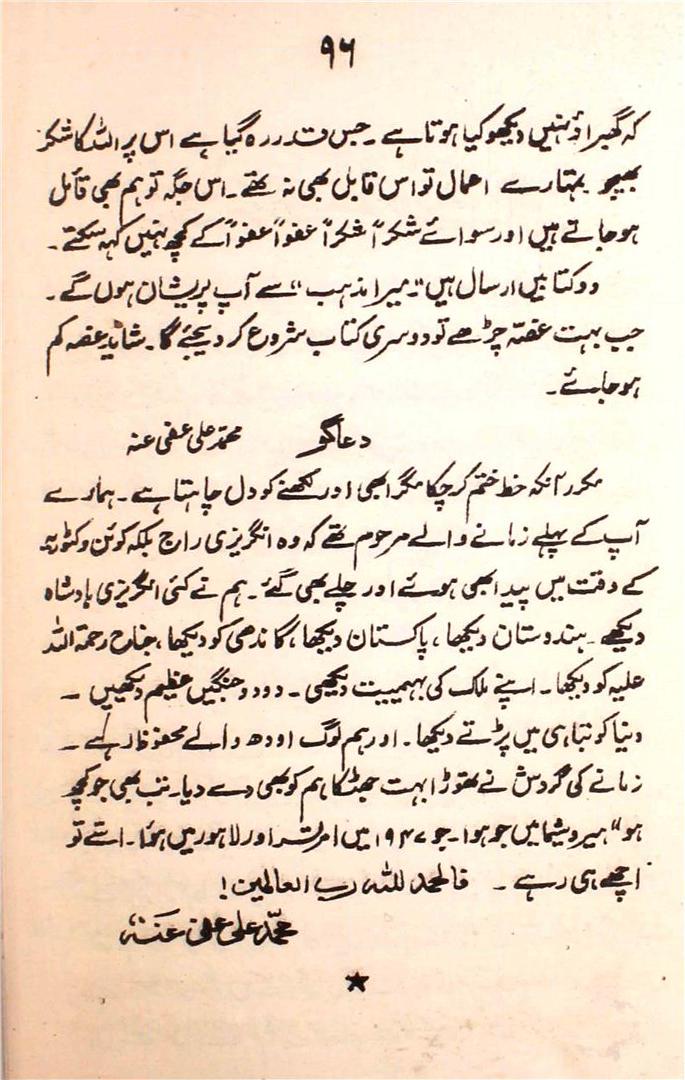 ۹۶
کہ گھبراؤ نہیں دیکھو کیا ہوتا ہے ۔ جس قدر رہ گیا ہے اس پر اللہ کا شکر
بھیجو تمہارے اعمال تو اس قابل بھی نہ تھے ۔ اس جگہ تو ہم بھی قائل
ہو جاتے ہیں اور سوائے شکراً شکراً عفواً عفواً کے کچھ نہیں کہہ سکتے ۔
دو کتابیں ارسال ہیں " میرا مذہب " سے آپ پریشان ہوں گے ۔
جب بہت غصّہ چڑھے تو دوسری کتاب شروع کر دیجئے گا ۔ شاید غصہ کم
ہو جائے ۔
دعا گو محمّد علی عفی عنہ
مکرر آنکہ خط ختم کر چکا مگر ابھی اور لکھنے کو دل چاہتا ہے ۔ ہمارے
آپ کے پہلے زمانے والے مرحوم تھے کہ وہ انگریزی راج بلکہ کوئن وکٹوریہ
کے وقت میں پیدا بھی ہوئے اور چلے بھی گئے ۔ ہم نے کئی انگریزی بادشاہ
دیکھے ۔ ہندوستان دیکھا ، پاکستان دیکھا ، گاندھی کو دیکھا ، جناح رحمۃ اللہ
علیہ کو دیکھا ۔ اپنے ملک کی بہیمیت دیکھی ۔ دو دو جنگیں عظیم دیکھیں ۔
دنیا کو تباہی میں پڑتے دیکھا ۔ اور ہم لوگ اودھ والے محفوظ رہے ۔
زمانے کی گردش نے تھوڑا بہت جھٹکا ہم کو بھی دے دیا ۔ تب بھی جو کچھ
ہو " ہیروشیما میں جو ہوا ۔ جو ۱۹۴۷ میں امرتسر اور لاہور میں ہوُا ۔ اتنے تو
اچھے ہی رہے ۔ فالحمد للہ رب العالمین !
محمّد علی عفی عنہ
★